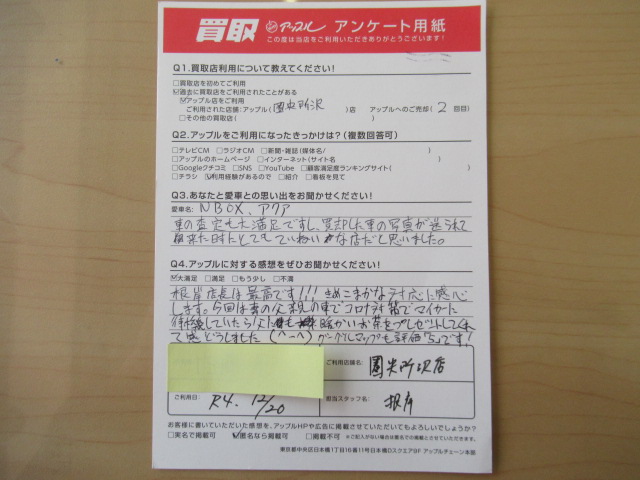 買取 アップル アンケート用紙
この度は当店をご利用いただきありがとうございます!
Q1.買取店利用について教えてください!
□買取店を初めてご利用
☑過去に買取店をご利用されたことがある
☑アップル店をご利用
ご利用された店舗:アップル(圏央所沢)店 アップルへのご売却(2 回目)
□その他の買取店( )
Q2.アップルをご利用になったきっかけは?(複数回答可)
□テレビCM □ラジオCM □新聞・雑誌(媒体名/ )
□アップルのホームページ □インターネット(サイト名 )
□Googleクチコミ □SNS □YouTube □顧客満足度ランキングサイト( )
□チラシ ☑利用経験があるので □紹介 □看板を見て
Q3.あなたと愛車との思い出をお聞かせください!
愛車名: NBOX、アクア
車の査定も大満足ですし、買却した車の写真が送られて
来た時にとてもていねいな店だと思いました。
Q4.アップルに対する感想をぜひお聞かせください!
☑大満足 □満足 □もう少し □不満
根岸店長は最高です!!! きめこまかな対応に感心
します。今回は妻の父親の車でコロナ対策でマイカー
待機していたら 暖かいお茶をプレゼントしてくれ
て感どうしました(^-^) グーグルマップも評価「5」です!
ご利用店舗名: 圏央所沢店
ご利用日: R4. 12/20 担当スタッフ名: 根岸
お客様に書いていただいた感想を、アップルHPや広告に掲載させていただいてもよろしいでしょうか?
□実名で掲載可 ☑匿名なら掲載可 □掲載不可 ※ご記入がない場合は匿名での掲載とさせていただきます。
東京都中央区日本橋1丁目16番11号日本橋Dスクエア9F アップルチェーン本部